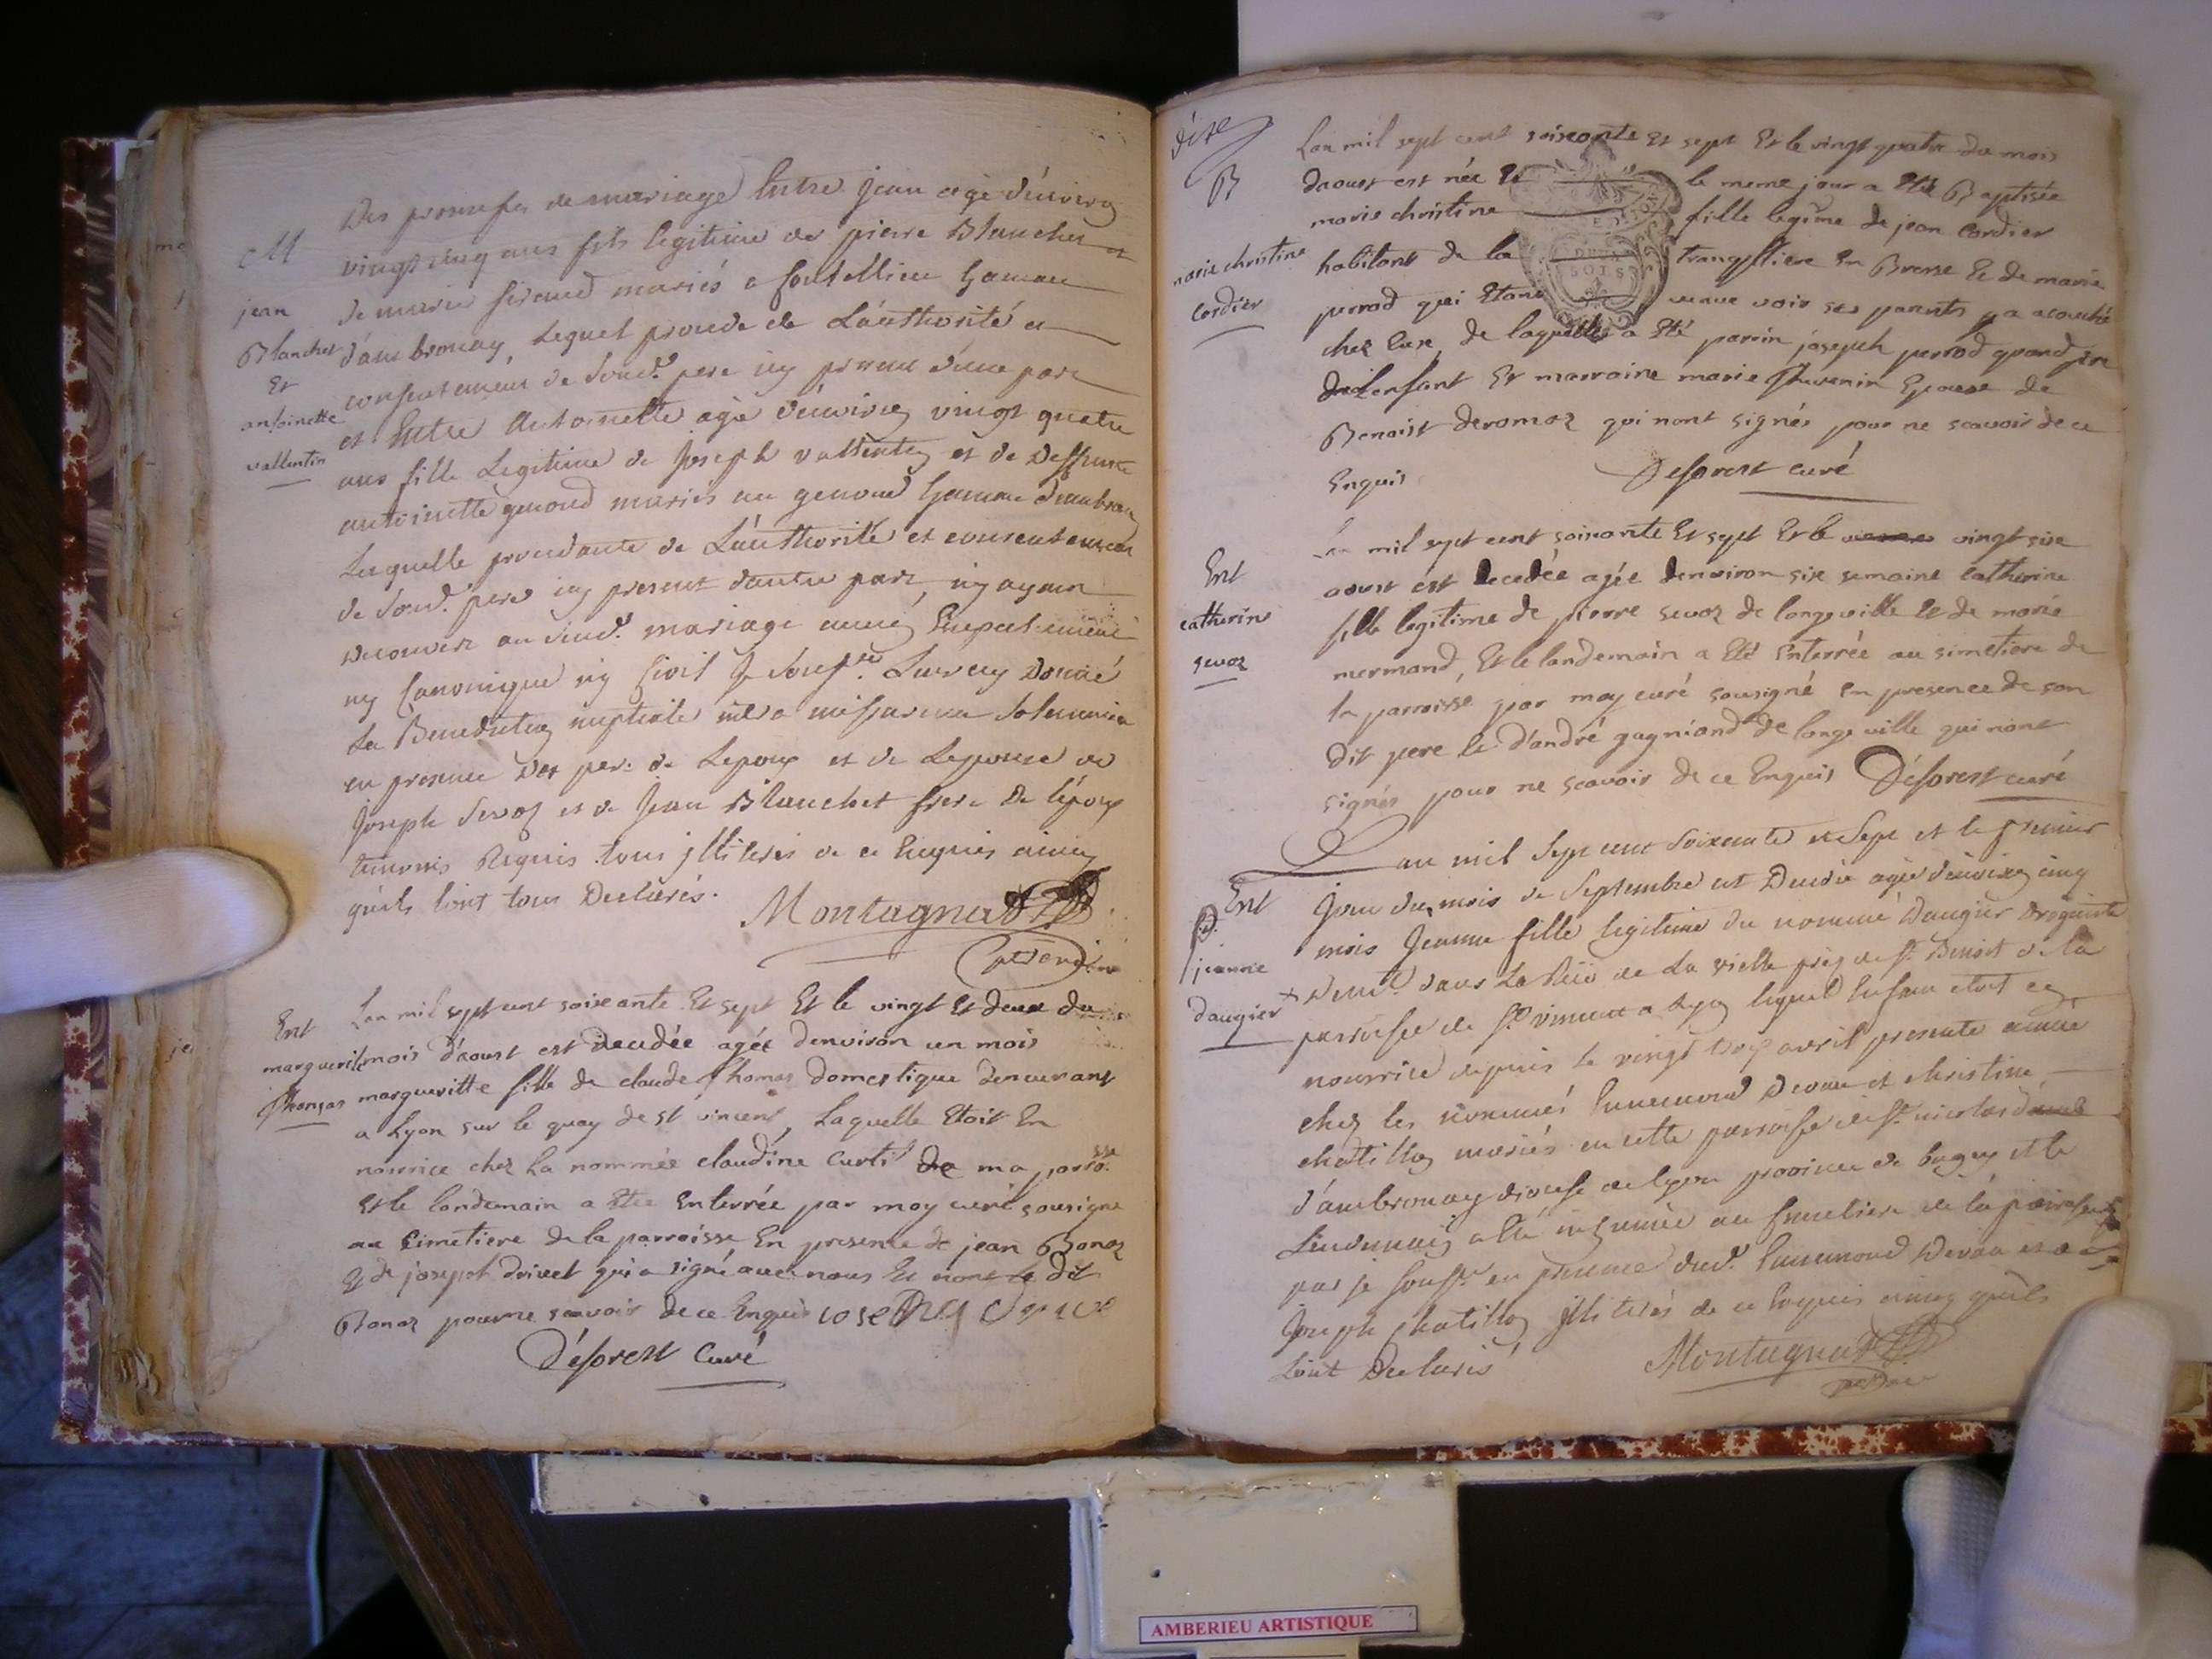 M
jean
Blanchet
Et
antoinette
vallentin
Des promesses de mariage Entre jean agé d'environ
vingt cinq ans fils legitime de pierre Blanchet et
de marie feraud mariés a hameau
d'ambronay, Lequel procede de L'authorité et
consentement de soud. pere icy present d'une part
et Entre Antoinette agée d'environ vingt quatre
ans fille Legitime de Joseph vallentin et de deffunte
antoinette genoud mariés au genoud hameau d'ambronay
Laquelle procedante de L'authorité et consentement
de soud. pere icy present d'autre part, n'y ayant
decouvert audud. mariage aucun Empechement
ny Canonique ny Civil Je souss.né Leur ay Donné
La Benediction nuptiale
en presence des peres de Lepoux et de Lepouse de
Joseph Sevoz et de Jean Blanchet frere De lépoux
temoins Requis tous jlliterés de ce Enquis ainsy
qu'ils L'ont tous Declarés.
Montagnat
Ent
marguerite
Thomas
Lan mil sept cent soixante Et sept Et le vingt Et deux du
mois d'aoust est decedée agée denviron un mois
margueritte fille de claude Thomas Domestique demeurant
a Lyon sur le quay de st vincent, Laquelle Etoit En
nourrice chez La nommée claudine Curti de ma parro.sse
Et le landemain a Etée Enterrée par moy curé sousigné
au Cimetiere de la parroisse En presence de jean Bonaz
Et de joseph drivet qui a signé avec nous Et non le dit
Bonaz pour ne scavoir de ce Enquis
Déforest Curé
dixe
B
marie christine
Cordier
Lan mil sept cent soixante Et sept Et le vingt quatre du mois
daoust est née Et le meme jour a Eté Baptisée
marie christine fille legime de jean Cordier
habitant de la tranqlliere En Bresse Et de marie
perrod qui Etant venue voir ses parents y a acouché
chez Eux, de laquelle a Eté parrin joseph perrod grand pere
de Lenfant Et marraine marie Thevenin Epouse de
Benoist deromaz qui nont signés pour ne scavoir de ce
Enquis Déforest curé
Ent
catherine
sevoz
Lan mil sept cent soixante Et sept Et le vingt six
aoust est decedée agée denviron six semaine catherine
fille legitime de pierre sevoz de longeville Et de marie
mermand, Et le landemain a Eté Enterrée au simetiere de
la parroisse par moy curé sousigné En presence de son
dit pere Et d'andré gagniand de longe ville qui nont
signés pour ne scavoir de ce Enquis Déforest curé
Ent
jeanne
daugier
Lan mil sept cent soixante et sept et le premier
Jour du mois de septembre est Decedée agée d'environ cinq
mois Jeanne fille legitime du nommé Daugier droguiste
demt. dans La Rue de La vielle près de st. Benoit de la
parroisse de st. vincent a Lyon lequel Enfant etoit en
nourrice depuis le vingt trois avril presente année
chez les nommés Ennemond Devau et christine
chatillon mariés en cette parroisse de st. nicolas
d'ambronay diocese de Lyon province de bugey et le
Lendemain a Eté inhumée au Cimetiere de la parroisse
par je souss.né en presence dud. Ennemond Devau et de
Joseph chatillon jlliterés de ce Enquis ainsy qu'ils
L'ont Declarés
Montagnat
AMBERIEU ARTISTIQUE